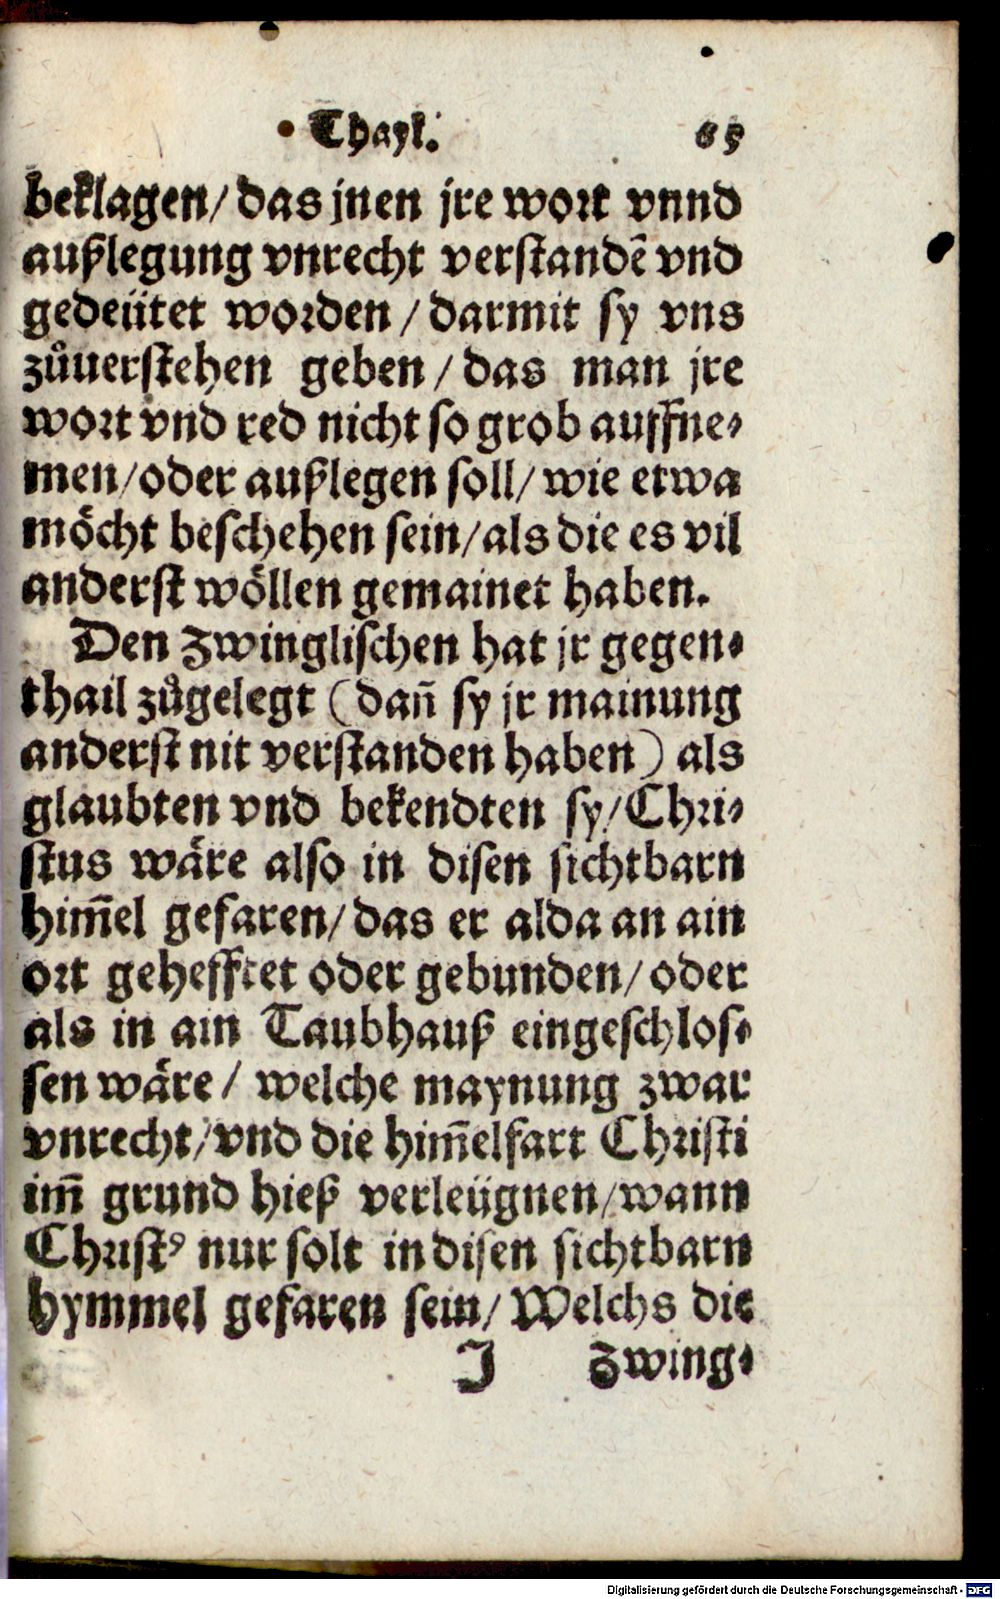 Thayl. 65
beklagen/ das jnen jre wort vnnd
außlegung vnrecht verstandẽ vnd
gedeütet worden / darmit sy vns
zůuerstehen geben / das man jre
wort vnd red nicht so grob auffne-
men/oder außlegen soll/ wie etwa
möcht beschehen sein/als die es vil
anderst wöllen gemainet haben.
Den Zwinglischen hat jr gegen-
thail zůgelegt (dañ sy jr mainung
anderst nit verstanden haben) als
glaubten vnd bekendten sy/ Chri-
stus wäre also in disen sichtbarn
him̃el gefaren/ das er alda an ain
ort gehefftet oder gebunden/ oder
als in ain Taubhauß eingeschlos-
sen wäre / welche maynung zwar
vnrecht/ vnd die him̃elfart Christi
im̃ grund hieß verleügnen/wann
Christꝰ nur solt in disen sichtbarn
hymmel gefaren sein/ Welchs die
J Zwing-
Digitalisierung gefördert durch die Deutsche Forschungsgemeinschaft - DFG